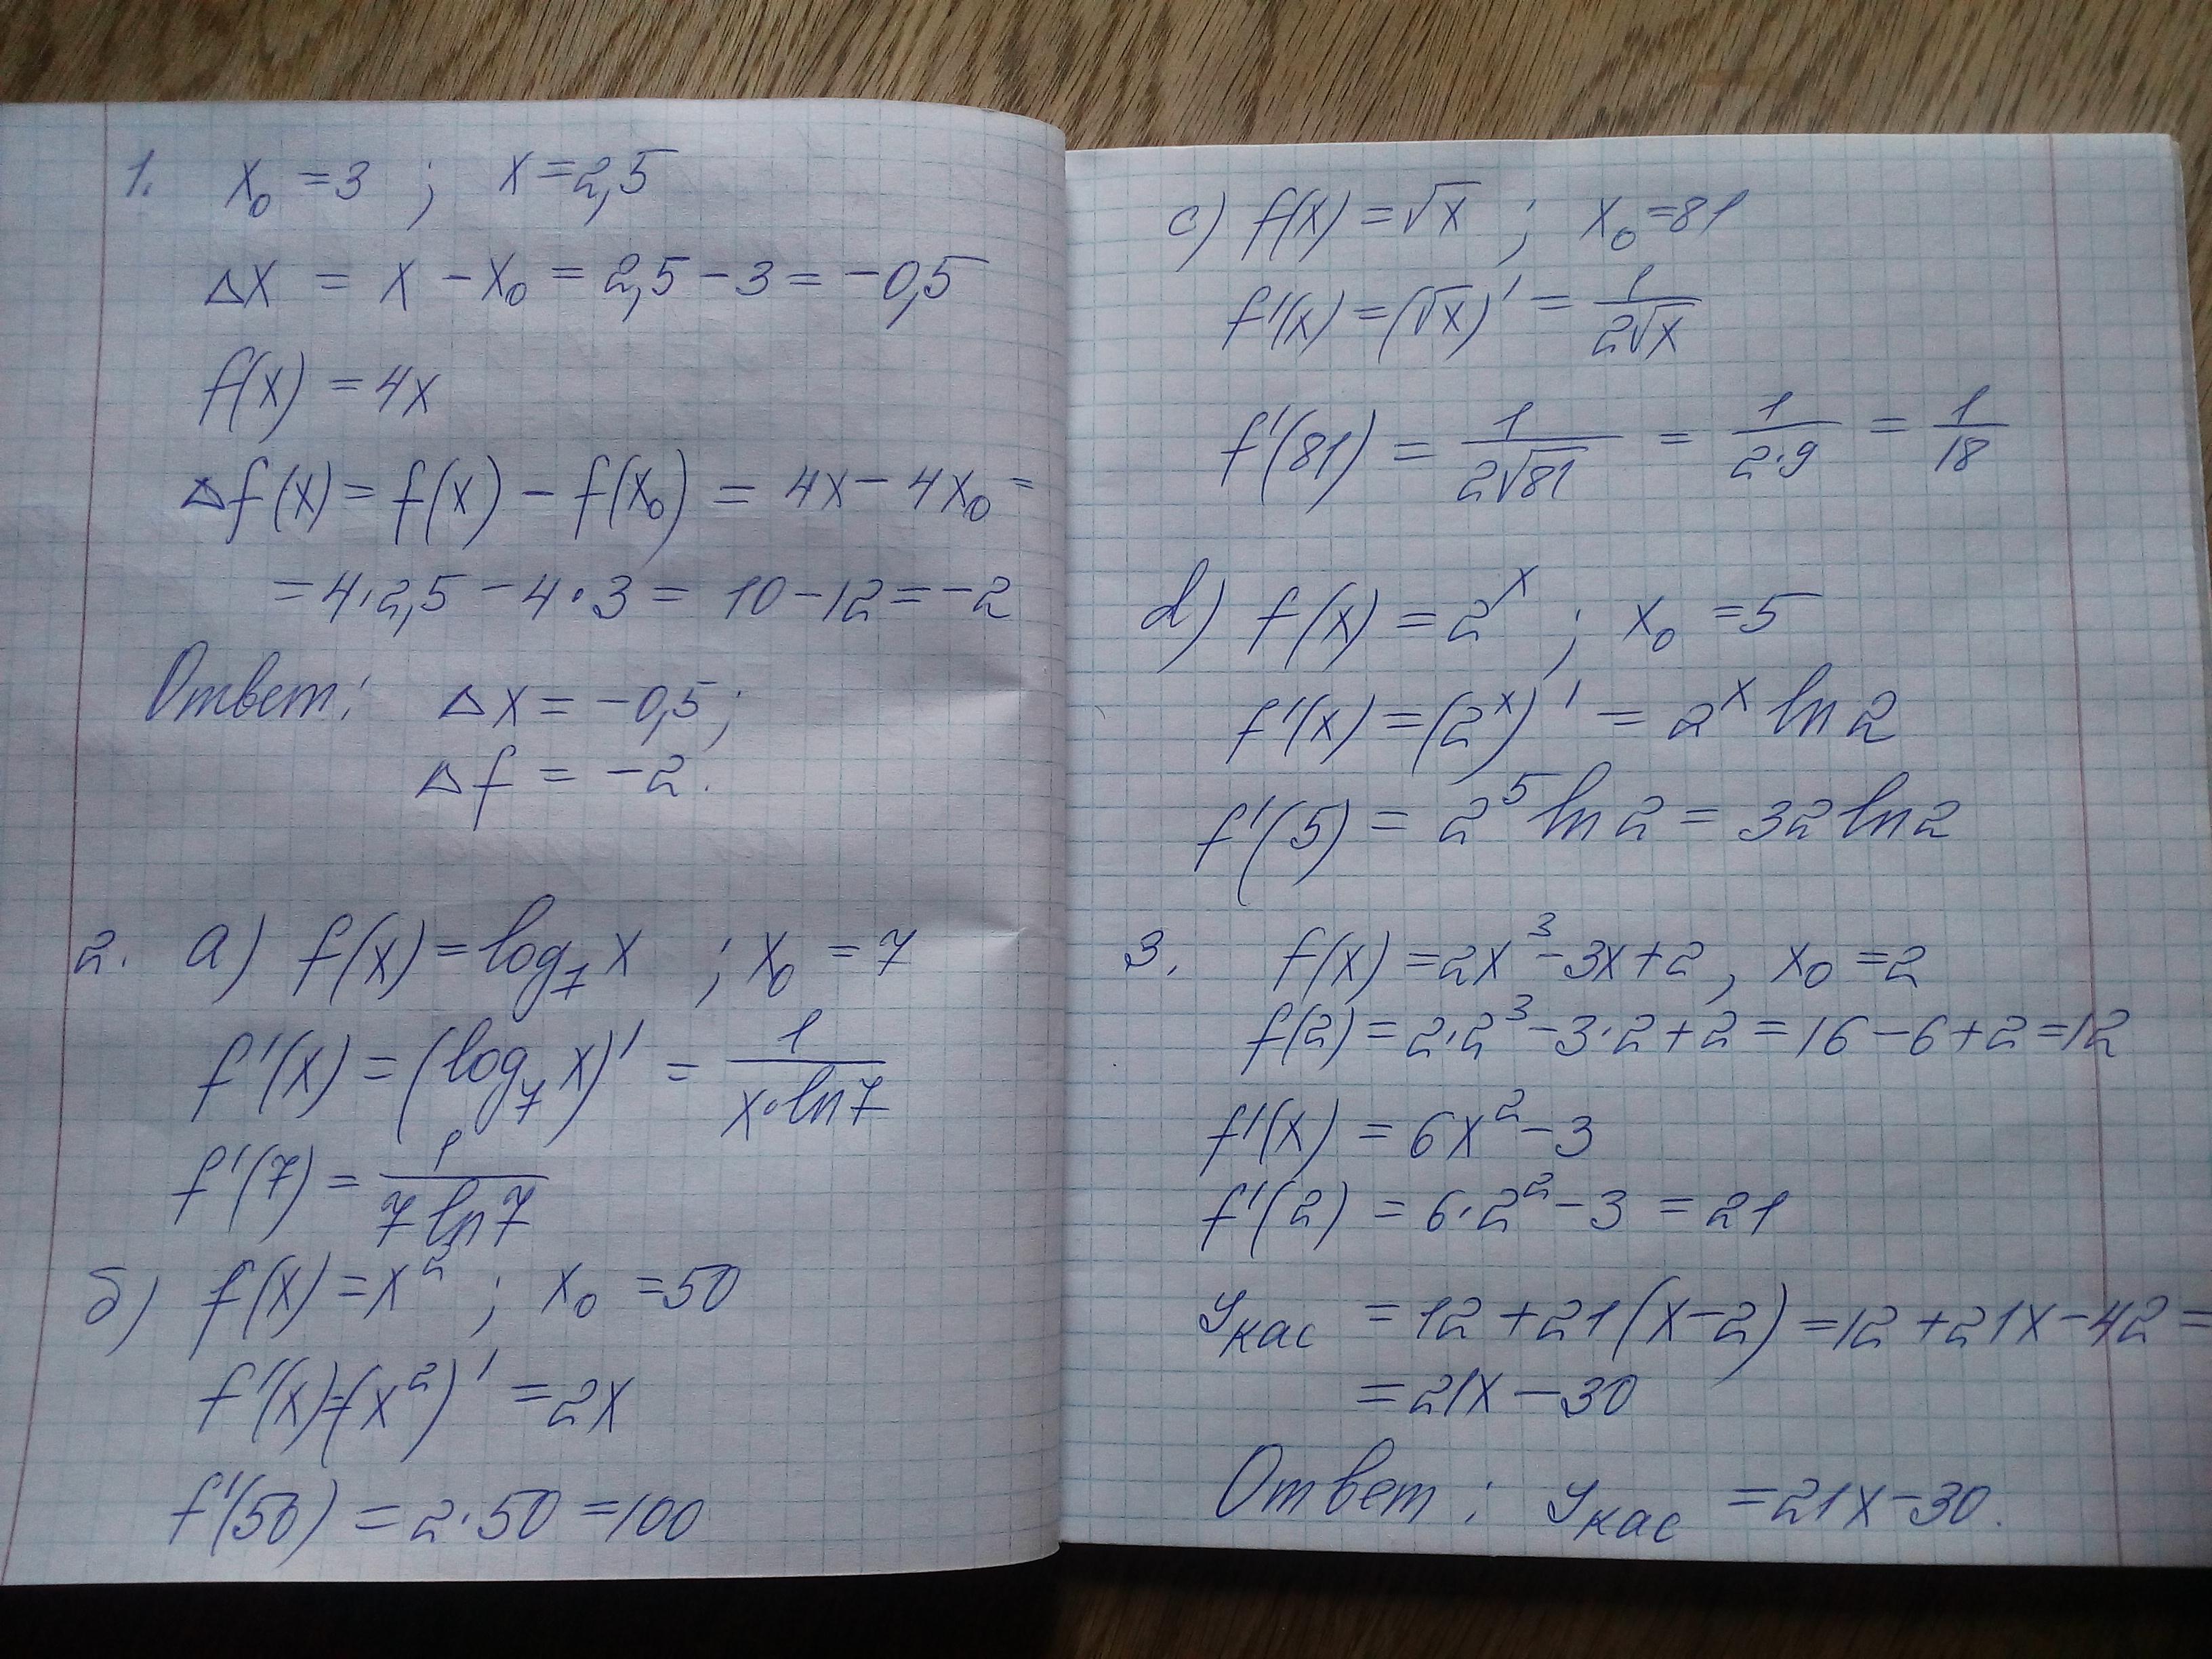 1. x₀ = 3 ; x = 2,5
Δx = x − x₀ = 2,5 − 3 = −0,5
f(x) = 4x
Δf(x) = f(x) − f(x₀) = 4x − 4x₀ =
= 4·2,5 − 4·3 = 10 − 12 = −2
Ответ: Δx = −0,5;
Δf = −2.
2. а) f(x) = log₇ x ; x₀ = 7
f'(x) = (log₇ x)' = 1/(x·ln7)
f'(7) = 1/(7 ln7)
б) f(x) = x² ; x₀ = 50
f'(x) = (x²)' = 2x
f'(50) = 2·50 = 100
c) f(x) = √x ; x₀ = 81
f'(x) = (√x)' = 1/(2√x)
f'(81) = 1/(2√81) = 1/(2·9) = 1/18
d) f(x) = 2ˣ ; x₀ = 5
f'(x) = (2ˣ)' = 2ˣ ln 2
f'(5) = 2⁵ ln 2 = 32 ln 2
3. f(x) = 2x³ − 3x + 2, x₀ = 2
f(2) = 2·2³ − 3·2 + 2 = 16 − 6 + 2 = 12
f'(x) = 6x² − 3
f'(2) = 6·2² − 3 = 21
yкас = 12 + 21(x − 2) = 12 + 21x − 42 =
= 21x − 30
Ответ: yкас = 21x − 30.